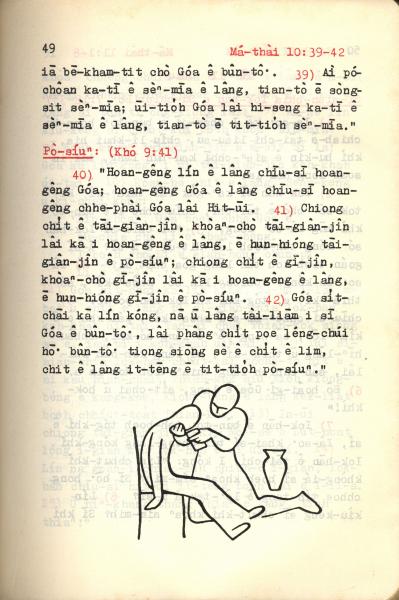 49 Má-thài 10:39-42
iā bē-kham-tit chò Góa ê bûn-tô͘. 39) Ài pó-
chôan ka-tī ê sèⁿ-mīa ê lâng, tian-tò ē sòng-
sit sèⁿ-mīa; ūi-tio̍h Góa lâi hi-seng ka-tī ê
sèⁿ-mīa ê lâng, tian-tò ē tit-tio̍h sèⁿ-mīa."
Pò-síuⁿ: (Khó 9:41)
40) "Hoan-gêng lín ê lâng chīu-sī hoan-
gêng Góa; hoan-gêng Góa ê lâng chīu-sī hoan-
gêng chhe-phài Góa lâi Hit-ūi. 41) Chiong
chi̍t ê tāi-giân-jîn, khòaⁿ-chò tāi-giân-jîn
lâi kā i hoan-gêng ê lâng, ē hun-hióng tāi-
giân-jîn ê pò-síuⁿ; chiong chi̍t ê gī-jîn,
khòaⁿ-chò gī-jîn lâi kā i hoan-gêng ê lâng,
ē hun-hióng gī-jîn ê pò-síuⁿ. 42) Góa si̍t-
chāi kā lín kóng, nā ū lâng tāi-liām i sī
Góa ê bûn-tô͘, lâi phâng chi̍t poe léng-chúi
hō͘ bûn-tô͘ tiong siōng sè ê chi̍t ê lim,
chit ê lâng it-tēng ē tit-tio̍h pò-síuⁿ."